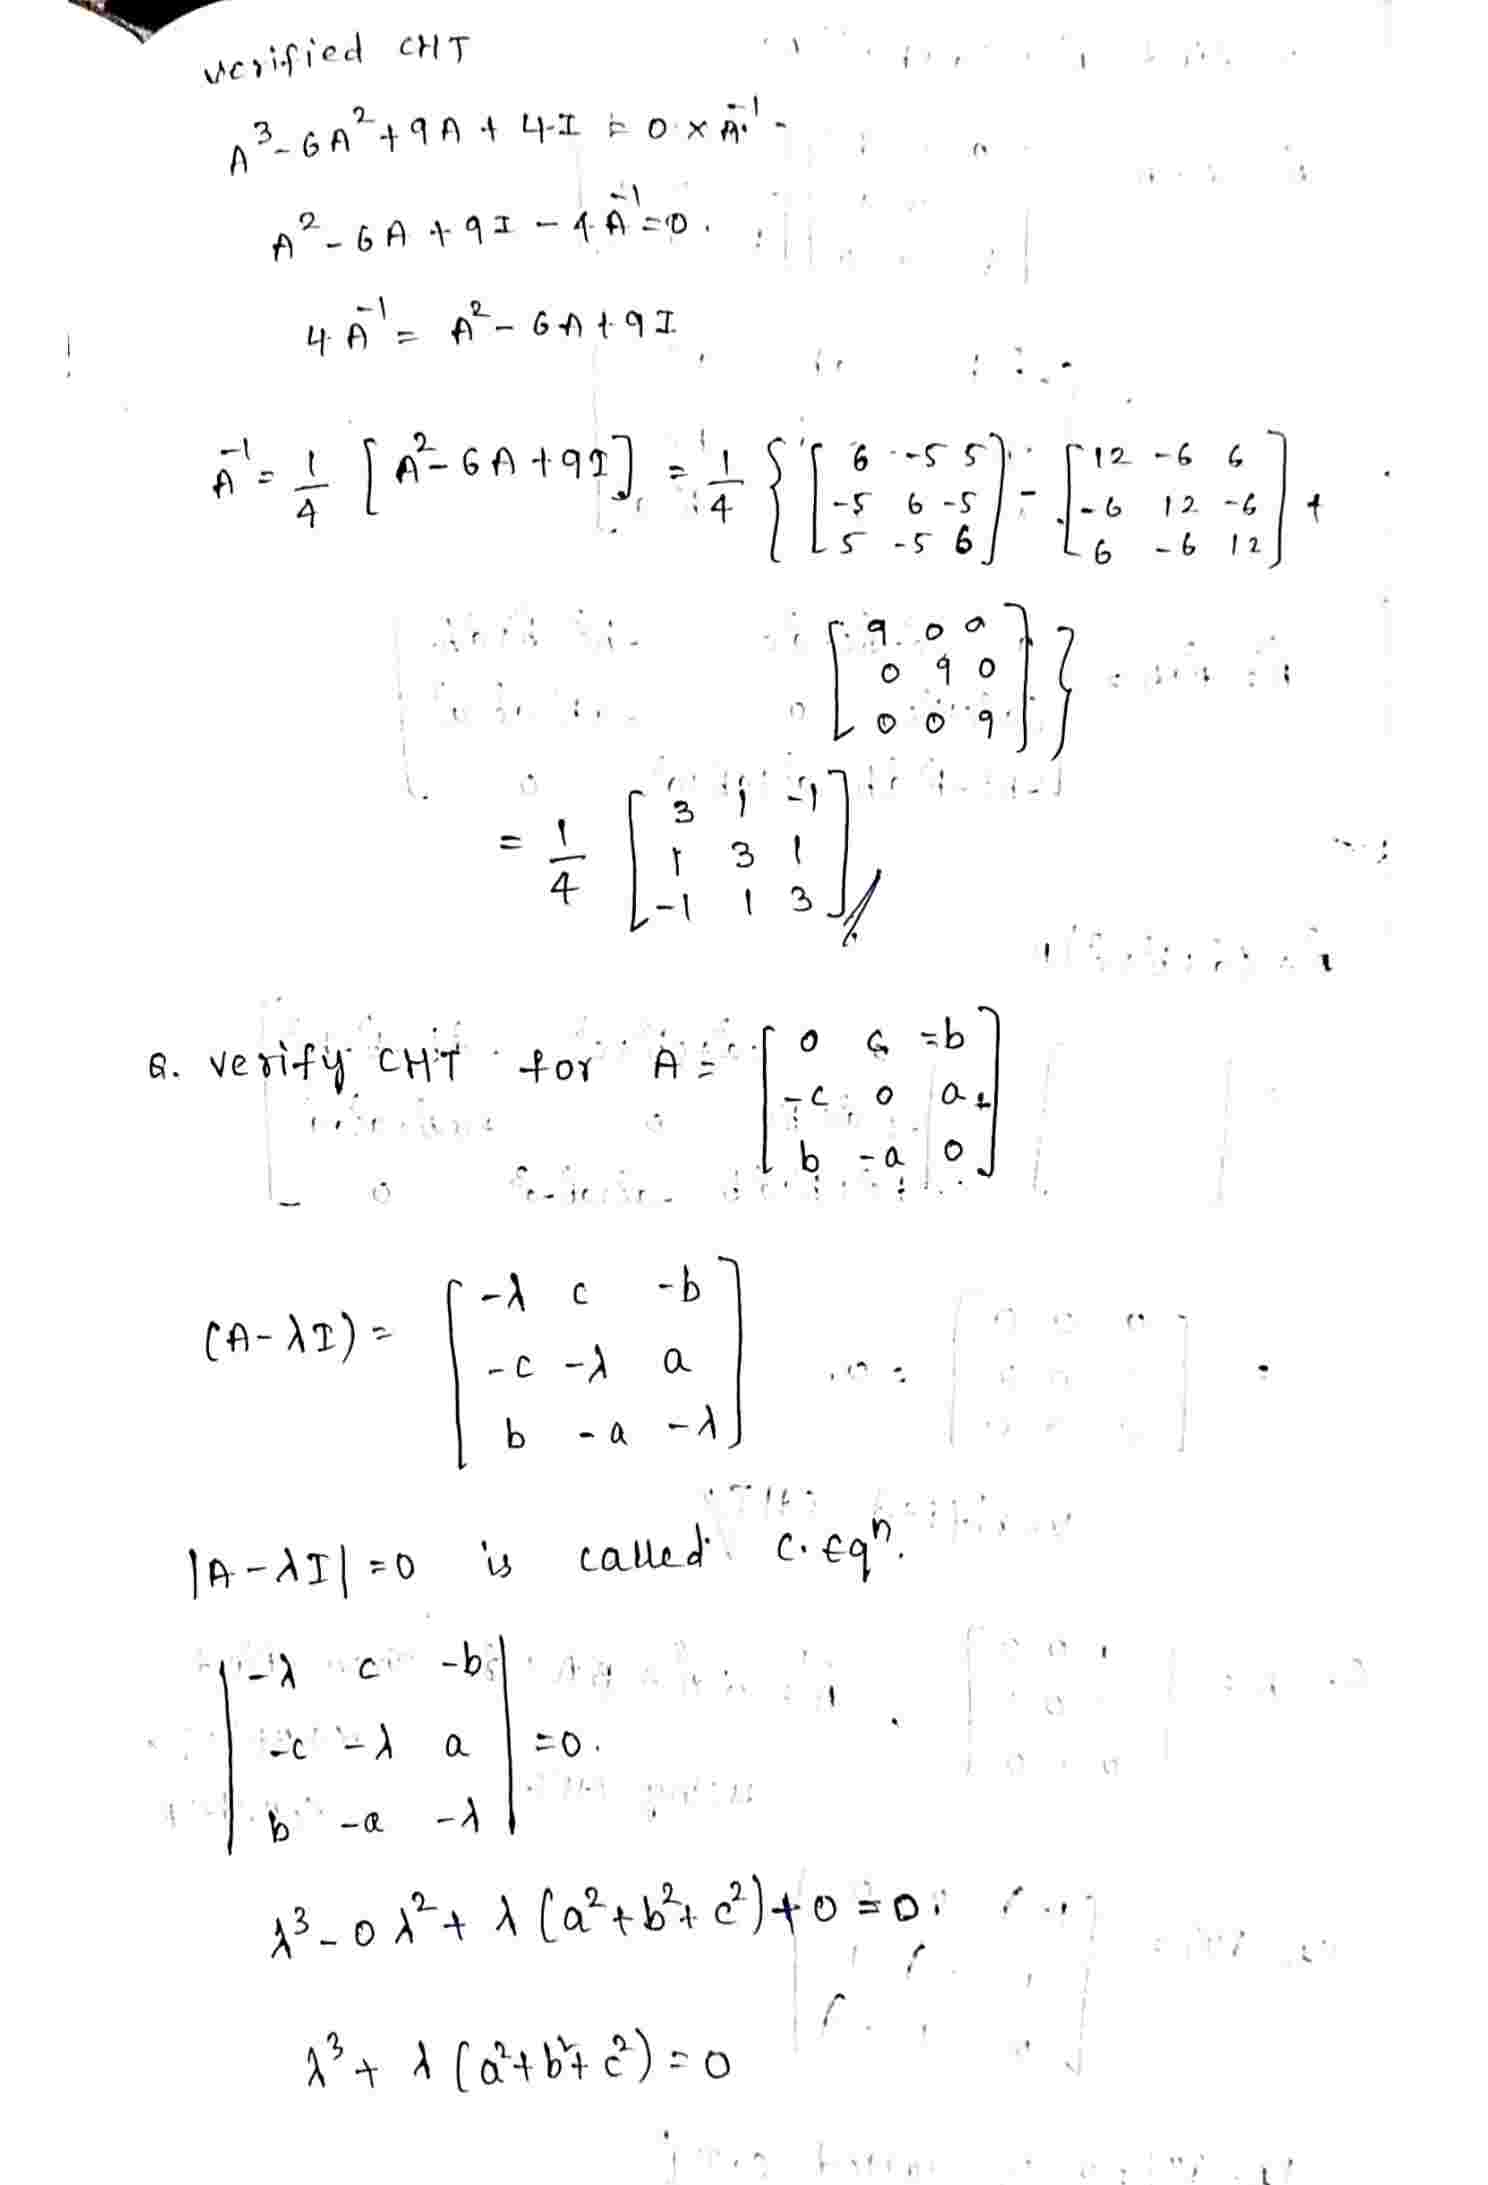 verified CHT
A³ - 6A² + 9A + 4I = 0 × A⁻¹
A² - 6A + 9I - 4A⁻¹ = 0.
4A⁻¹ = A² - 6A + 9I
A⁻¹ = 1/4 [A² - 6A + 9I] = 1/4 { [6 -5 5; -5 6 -5; 5 -5 6] - [12 -6 6; -6 12 -6; 6 -6 12] +
[9 0 0; 0 9 0; 0 0 9] }
= 1/4 [3 1 -1; 1 3 1; -1 1 3]
Q. verify CHT for A = [0 c -b; -c 0 a; b -a 0]
(A - λI) = [-λ c -b; -c -λ a; b -a -λ]
|A - λI| = 0 is called C. Eqⁿ.
|-λ c -b; -c -λ a; b -a -λ| = 0.
λ³ - 0λ² + λ(a² + b² + c²) + 0 = 0.
λ³ + λ(a² + b² + c²) = 0